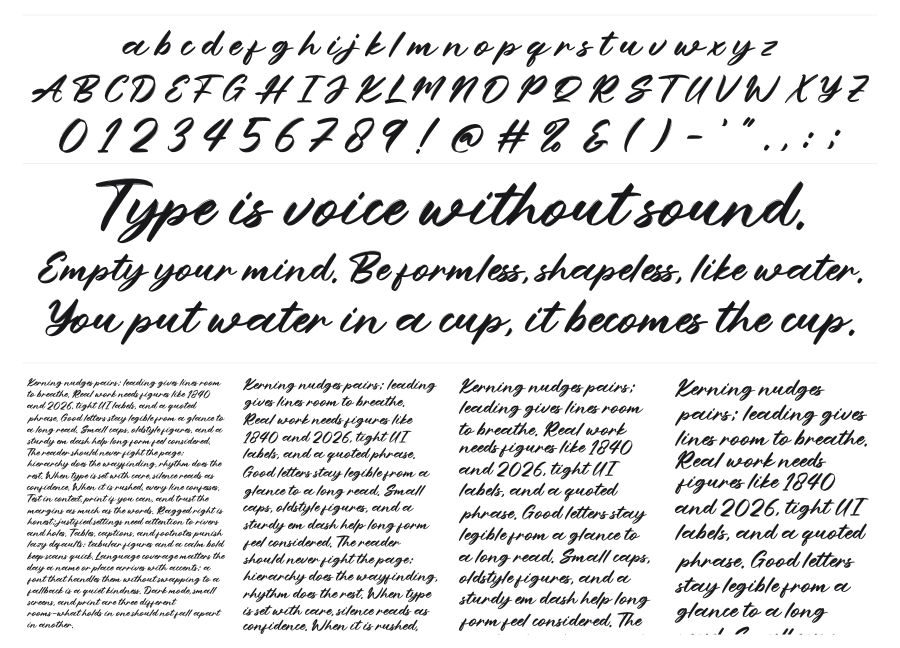 a b c d e f g h i j k l m n o p q r s t u v w x y z
A B C D E F G H I J K L M N O P Q R S T U V W X Y Z
0 1 2 3 4 5 6 7 8 9 ! @ # % & ( ) - ' " . , : ;
Type is voice without sound.
Empty your mind. Be formless, shapeless, like water.
You put water in a cup, it becomes the cup.
Kerning nudges pairs; leading gives lines room
to breathe. Real work needs figures like 1840
and 2026, tight UI labels, and a quoted
phrase. Good letters stay legible from a glance to
a long read. Small caps, oldstyle figures, and a
sturdy em dash help long form feel considered.
The reader should never fight the page:
hierarchy does the wayfinding, rhythm does the
rest. When type is set with care, silence reads as
confidence. When it is rushed, every line confesses.
Test in context, print if you can, and trust the
margins as much as the words. Ragged right is
honest; justified settings need attention to rivers
and holes. Tables, captions, and footnotes punish
lazy defaults: tabular figures and a calm bold
keep scans quick. Language coverage matters the
day a name or place arrives with accents; a
font that handles them without swapping to a
fallback is a quiet kindness. Dark mode, small
screens, and print are three different
rooms—what holds in one should not fall apart
in another.
Kerning nudges pairs; leading
gives lines room to breathe.
Real work needs figures like
1840 and 2026, tight UI
labels, and a quoted phrase.
Good letters stay legible from a
glance to a long read. Small
caps, oldstyle figures, and a
sturdy em dash help long form
feel considered. The reader
should never fight the page:
hierarchy does the wayfinding,
rhythm does the rest. When type
is set with care, silence reads as
confidence. When it is rushed,
Kerning nudges pairs;
leading gives lines room
to breathe. Real work
needs figures like 1840
and 2026, tight UI
labels, and a quoted
phrase. Good letters stay
legible from a glance to
a long read. Small caps,
oldstyle figures, and a
sturdy em dash help long
form feel considered. The
Kerning nudges
pairs; leading gives
lines room to breathe.
Real work needs
figures like 1840
and 2026, tight UI
labels, and a quoted
phrase. Good letters
stay legible from a
glance to a long